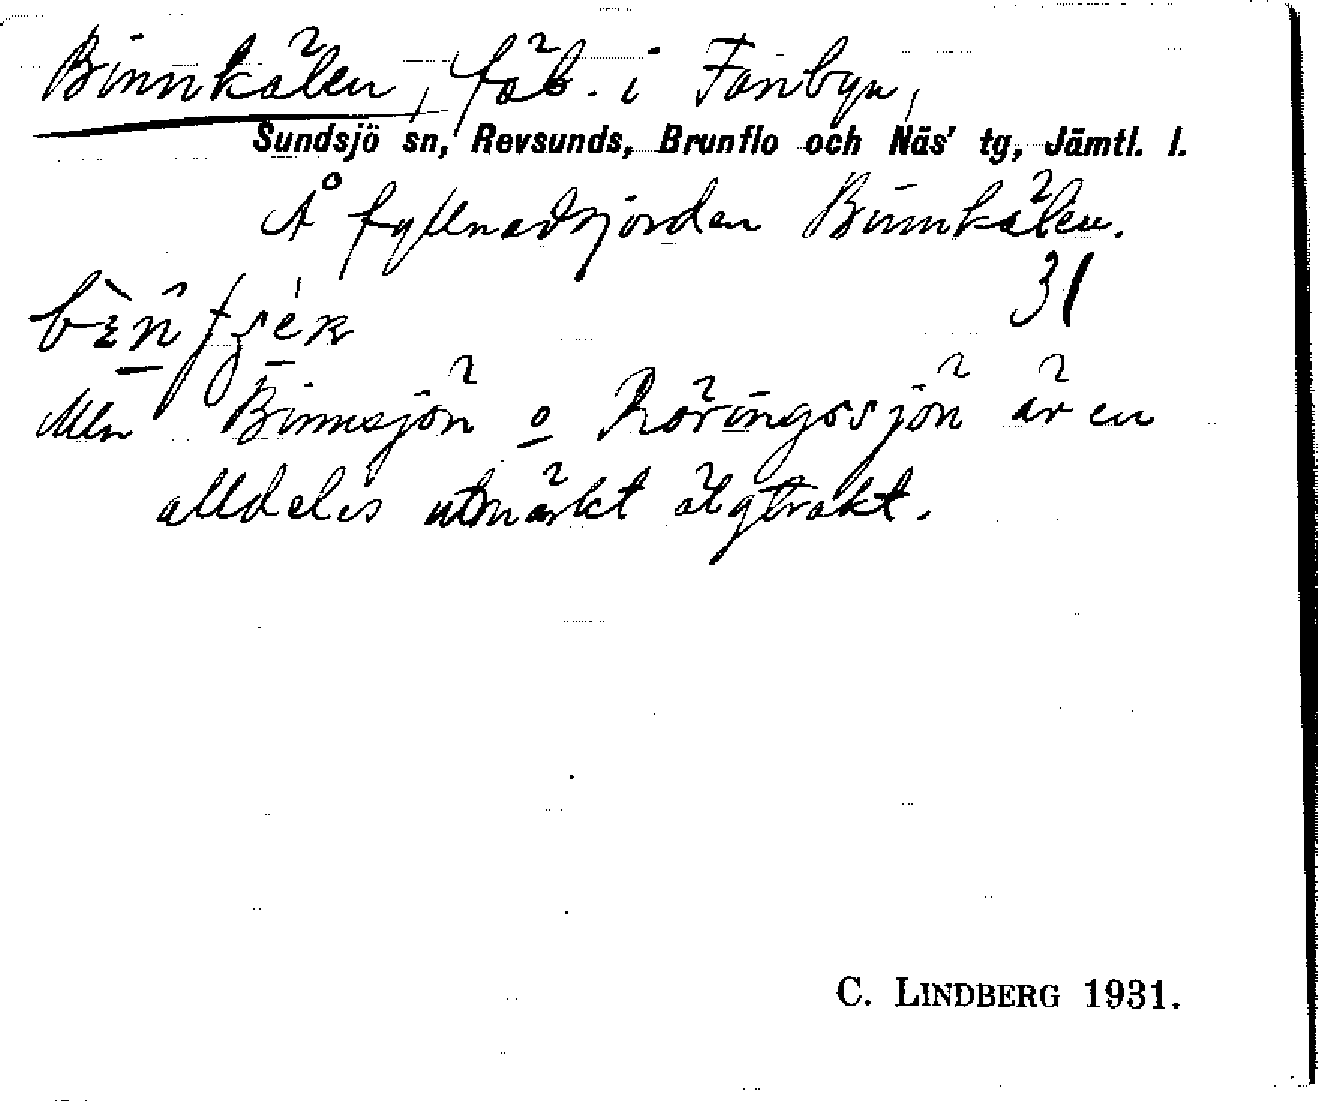 Binnkälen, fäb. i Fanbyn,
Sundsjö sn, Revsunds, Brunflo och Näs' tg, Jämtl. l.
Å fyllnadsjorden Binnkälen.
31
Mln Binnsjön o Röringssjön är en
alldeles utmärkt älgtrakt.
C. LINDBERG 1931.